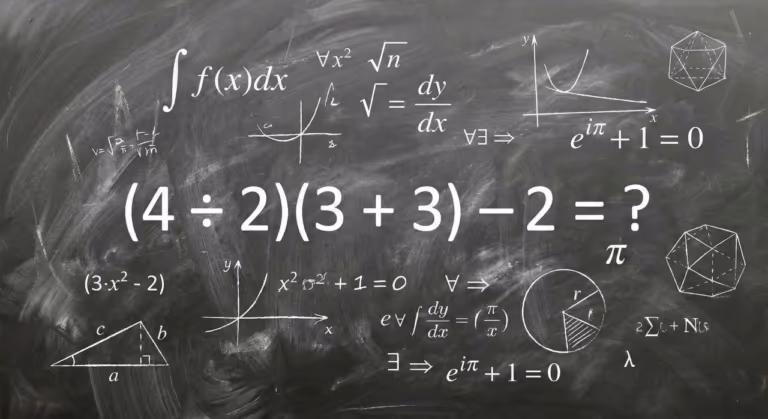 ∫ f(x)dx
∀x² √n
√ = dy/dx
y
x
∀∃ ⇒
e^{iπ} + 1 = 0
(4 ÷ 2)(3 + 3) − 2 = ?
π
(3·x² - 2)
y
x
∀ ⇒
r
e ∀ ∫ dy/dx = (π/x)
c
b
a
∃ ⇒ e^{iπ} + 1 = 0
λ